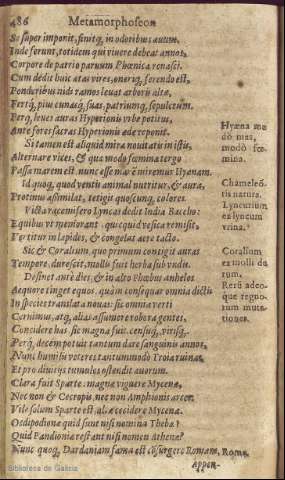 486 Metamorphoseon
Se super imponit, finitq́, in odoribus aevum.
Inde ferunt, totidem qui vivere debeat annos,
Corpore de patrio parvum Phœnica renasci.
Cum dedit huic ætas vires, oneriq́, ferendo est,
Ponderibus nidi ramos levat arboris altæ,
Fertq́, pius cunasq́, suas, patriumq́, sepulcrum.
Perq́, leves auras Hyperionis urbe potitus,
Ante fores sacras Hyperionis æde reponit.
Si tamen est aliquid miræ novitatis in istis,
Alternare vices, & quæ modo fœmina tergo
Passa marem est, nunc esse marē miremur Hyænam.
Id quoq́, quod ventis animal nutritur, & aura,
Protinus assimilat, tetigit quoscunq́, colores.
Victa racemifero Lyncas dedit India Baccho:
Equibus vt memorant, quicquid vesica remisit,
Vertitur in lapides, & congelat aere tacto.
Sic & Coralium, quo primum contigit auras
Tempore, durescit, mollis fuit herba sub vndis.
Desinet ante dies, & in alto Phœbus anhelos
Aequore tinget equos, quàm consequar omnia dictis
In species translata novas: sic omnia verti
Cernimus, atq́, alias assumere robora gentes,
Concidere has: sic magna fuit censuq́, virisq́,
Perq́, decem potuit tantum dare sanguinis annos,
Nunc humilis veteres tantummodo Troia ruinas,
Et pro divitijs tumulos ostendit avorum.
Clara fuit Sparte: magnæ viguere Mycenæ,
Nec non & Cecropis, nec non Amphionis arces.
Vile solum Sparte est, altæ cecidere Mycenæ.
Oedipodioniæ quid sunt nisi nomina Thebæ?
Quid Pandioniæ restant nisi nomen Athenæ?
Nunc quoq́, Dardaniam fama est cōsurgere Romam,
Appen-
Hyæna mo
dò mas,
modò fœ
mina.
Chameleō
tis natura.
Lyncurium
ex lyncum
vrina.
Corallium
ex molli du
rum.
Rerū adeo-
que regno-
rum muta-
tiones.
Roma.
Biblioteca de Galicia